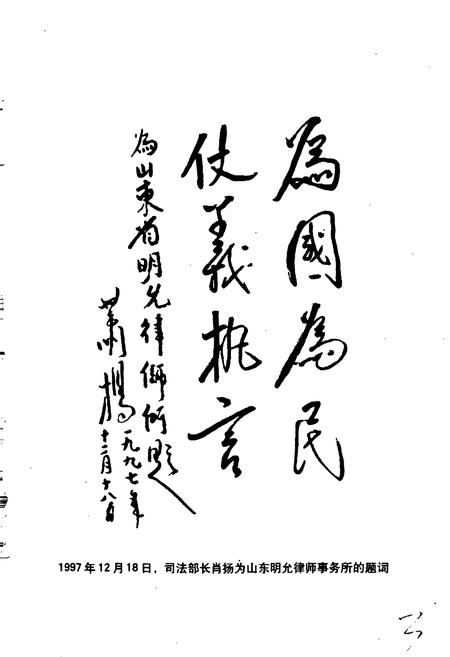 為國為民
仗義執言
為山東省明允律師所題
蕭揚
一九九七年
十二月十八日
1997年12月18日，司法部长肖扬为山东明允律师事务所的题词